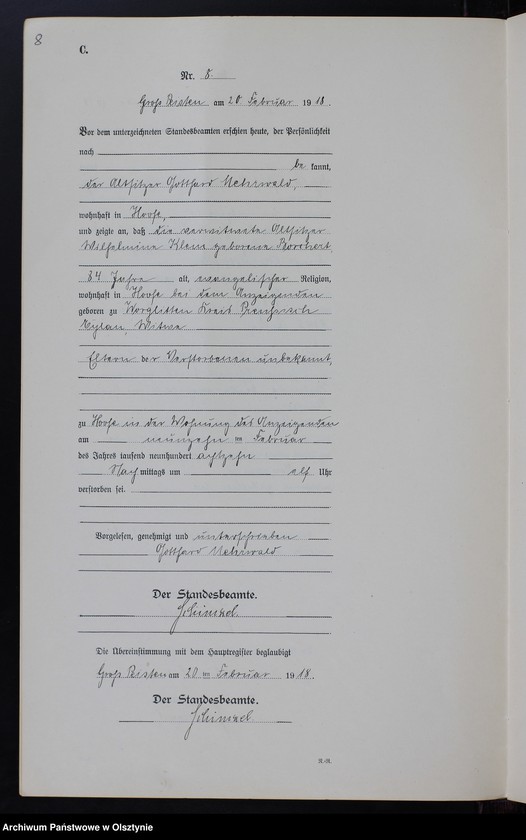 8
C.
Nr. 8.
Groß Peisten am 20 Februar 1918.
Vor dem unterzeichneten Standesbeamten erschien heute, der Persönlichkeit
nach
be kannt,
der Altsitzer Gotthard Uehrwald,
wohnhaft in Hoofe,
und zeigte an, daß die verwitwete Altsitzer
Wilhelmine Klein geborene Borchert
84 Jahre alt, evangelischer Religion,
wohnhaft in Hoofe bei dem Anzeigenden
geboren zu Worglitten Kreis Preußisch
Eylau, Witwe
Eltern der Verstorbenen unbekannt,
zu Hoofe in der Wohnung des Anzeigenden
am neunzehn ten Februar
des Jahres tausend neunhundert achtzehn
Nach mittags um elf Uhr
verstorben sei.
Vorgelesen, genehmigt und unterschrieben
Gotthard Uehrwald
Der Standesbeamte.
Schimkel
Die Übereinstimmung mit dem Hauptregister beglaubigt
Groß Peisten am 20 ten Februar 1918.
Der Standesbeamte.
Schimkel
Archiwum Państwowe w Olsztynie